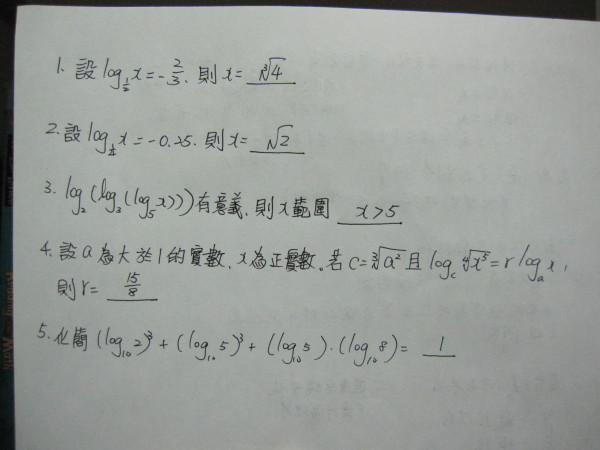 1. 設 log_{1/2} x = -2/3. 則 x = ∛4
2. 設 log_{1/4} x = -0.25. 則 x = √2
3. log_2(log_3(log_5 x))) 有意義, 則 x 範圍 x>5
4. 設 a 為大於 1 的實數、x 為正實數。若 c = ∛a² 且 log_c ∜x⁵ = r log_a x,
則 r = 15/8
5. 化簡 (log_{10} 2)³ + (log_{10} 5)³ + (log_{10} 5)·(log_{10} 8) = 1